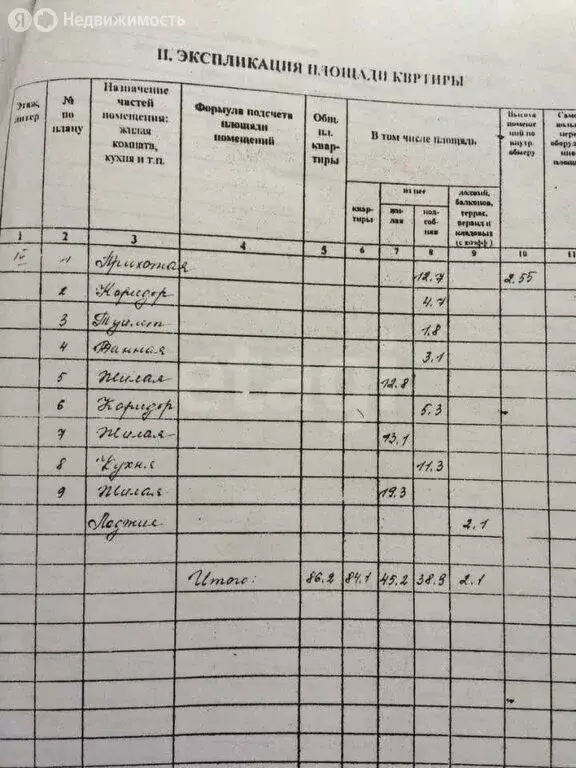 Я Недвижимость
II. ЭКСПЛИКАЦИЯ ПЛОЩАДИ КВРТИРЫ
Этаж, литер
№ по плану
Назначение частей помещения: жилая комната, кухня и т.п.
Формула подсчета площади помещений
Общ. пл. квар- тиры
В том числе площадь
квар- тиры
из нее
жи- лая
под- соб- ная
лоджий, балконов, террас, веранд и кладовых (с коэфф)
Высота помеще ний по внутр. обмеру
1 2 3 4 5 6 7 8 9 10 11
IV 1 Прихожая 12.7 2.55
2 Коридор 4.7
3 Туалет 1.8
4 Ванная 3.1
5 Жилая 12.8
6 Коридор 5.3
7 Жилая 13.1
8 Кухня 11.3
9 Жилая 19.3
Лоджия 2.1
Итого: 86.2 84.1 45.2 38.9 2.1